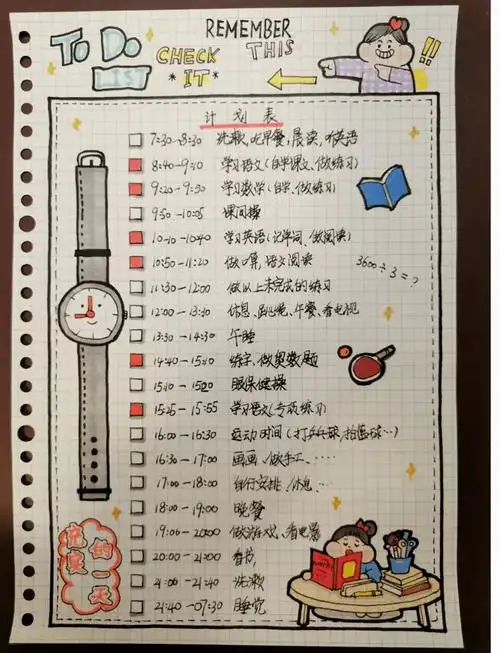 TO DO
LIST
REMEMBER
THIS
CHECK
*IT*
!!
计划表
7:30-8:30 洗漱、吃早餐,晨读、听英语
8:40-9:10 学习语文(自学课文、做练习)
9:20-9:50 学习数学(自学、做练习)
9:50-10:05 课间操
10:10-10:40 学习英语(记单词、做阅读)
10:50-11:20 做口算,语文阅读
11:30-12:00 做以上未完成的练习
12:00-13:30 休息、跳绳、午餐、看电视
13:30-14:30 午睡
14:40-15:10 练字、做奥数题
15:10-15:20 眼保健操
15:25-15:55 学习语文(专项练习)
16:00-16:30 运动时间(打乒乓球,拍篮球…)
16:30-17:00 画画、做手工、……
17:00-18:00 自行安排、休息…
18:00-19:00 晚餐
19:00-20:00 做游戏、看电影
20:00-21:00 看书
21:00-21:40 洗漱
21:40-07:30 睡觉
3600÷3=?
充实
的一天